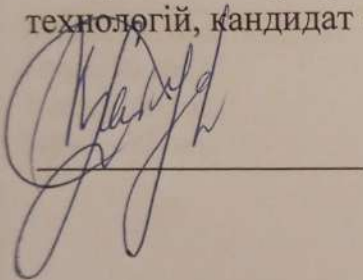 технологій, кандидат